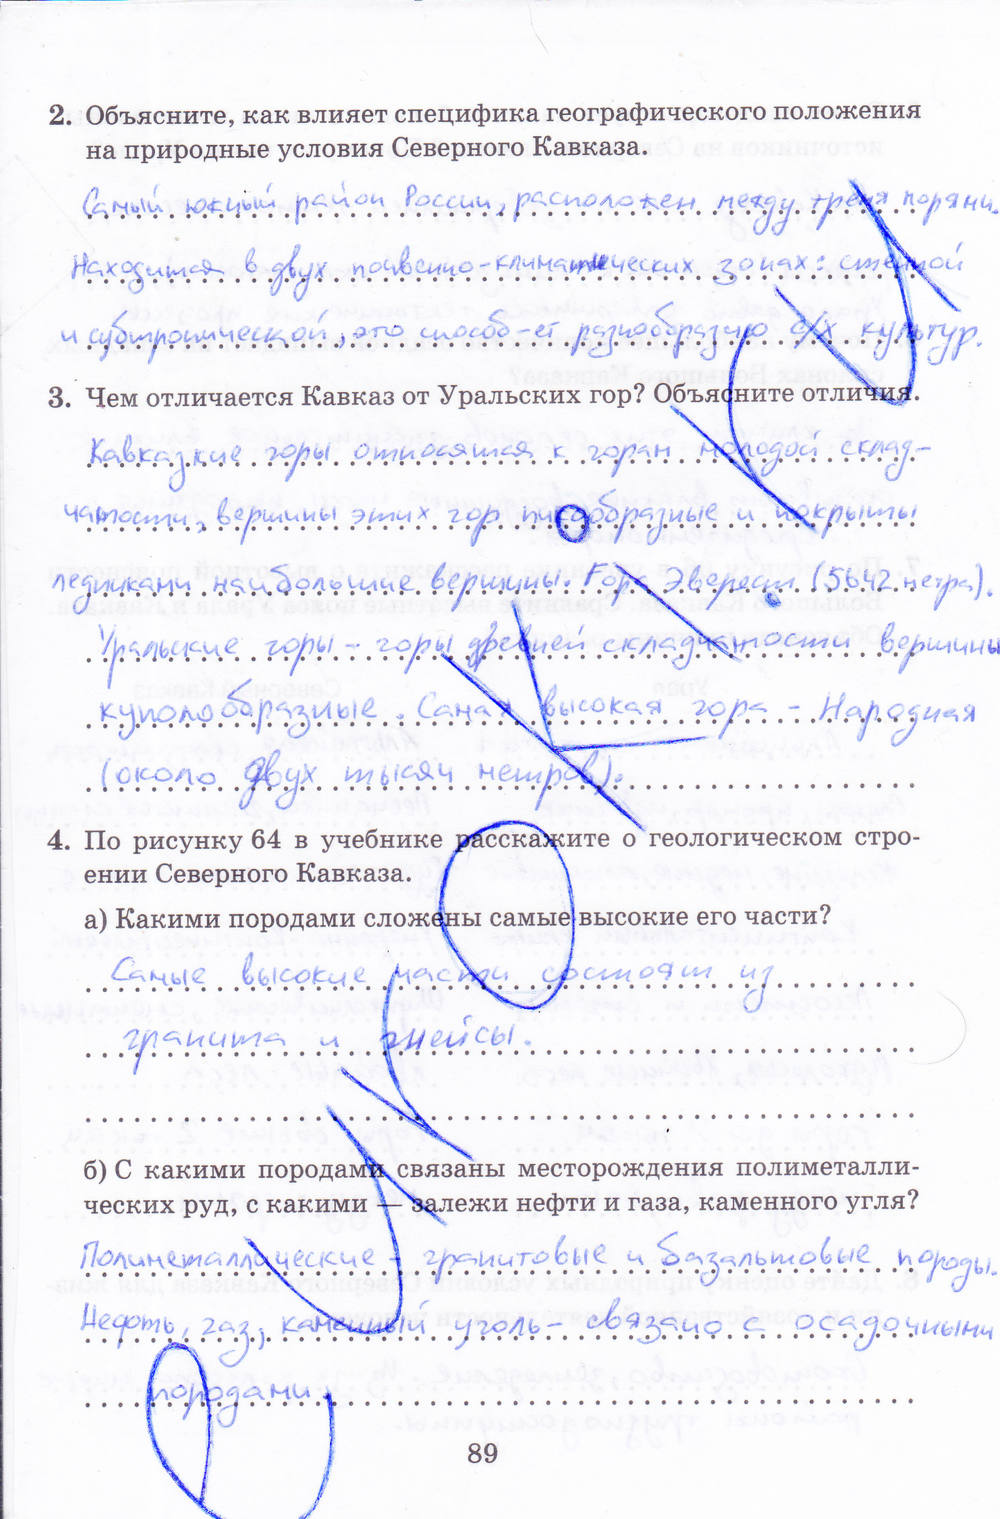 2. Объясните, как влияет специфика географического положения
на природные условия Северного Кавказа.
Самый южный район России, расположен между тремя морями.
Находится в двух почвенно-климатических зонах: степной
и субтропической, это способ-ет разнообразию с/х культур.
3. Чем отличается Кавказ от Уральских гор? Объясните отличия.
Кавказкие горы относятся к горам молодой склад-
чатости, вершины этих гор пикообразные и покрыты
ледниками наибольшие вершины. Гор. Эверест (5642 метра).
Уральские горы - горы древней складчатости вершины
куполообразные. Самая высокая гора - Народная
(около двух тысяч метров).
4. По рисунку 64 в учебнике расскажите о геологическом стро-
ении Северного Кавказа.
а) Какими породами сложены самые высокие его части?
Самые высокие части состоят из
гранита и гнейсы.
б) С какими породами связаны месторождения полиметалли-
ческих руд, с какими — залежи нефти и газа, каменного угля?
Полиметаллические - гранитовые и базальтовые породы.
Нефть, газ, каменный уголь - связано с осадочными
породами.
89